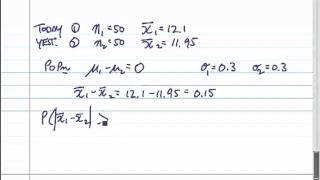 TODAY ① n₁=50 x̄₁=12.1
YEST. ② n₂=50 x̄₂=11.95
POPⁿ μ₁-μ₂=0 σ₁=0.3 σ₂=0.3
x̄₁-x̄₂ = 12.1-11.95 = 0.15
P(|x̄₁-x̄₂| ≥